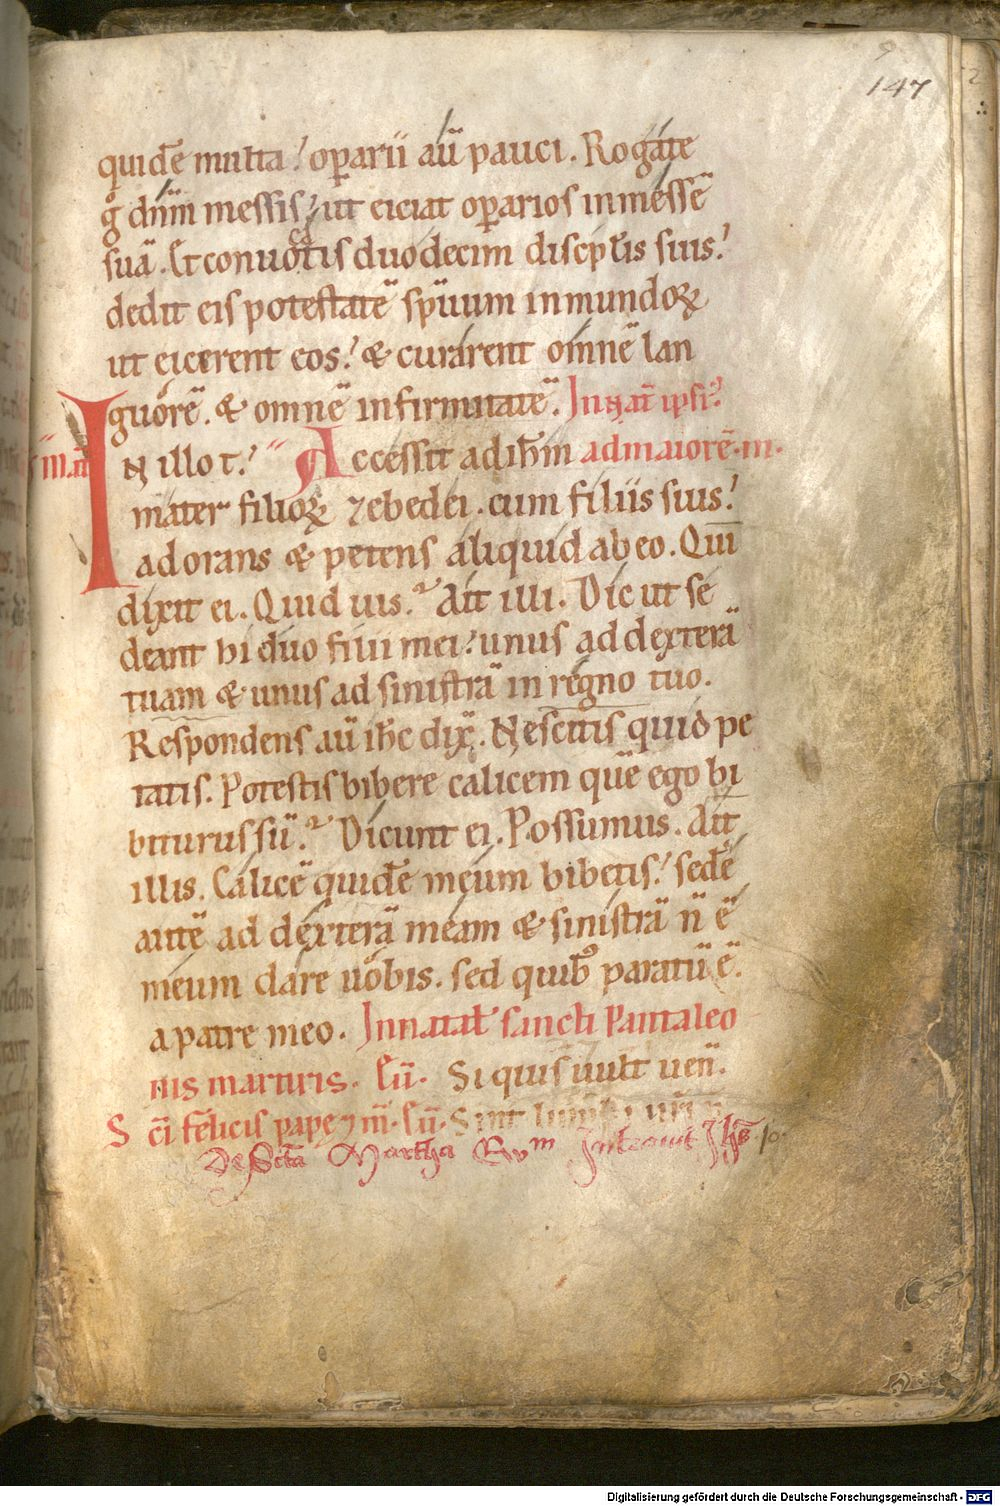 147
quidē multa! oꝑarii aū pauci. Rogate
gͦ dn̄m messis, ut eiciat oꝑarios in messē
suā. Et conuocatis duodecim discip̄lis suis!
dedit eis potestatē sp̄uum inmundoꝝ
ut eicerent eos! & curarent omnē lan
guorē. & omnē infirmitatē. In nat̄ ipsi⁹
IN illo t̄. Accessit ad ih̄m ad maiorē. m.
mater filioꝝ zebedei. cum filiis suis!
adorans & petens aliquid ab eo. Qui
dixit ei. Quid uis? Ait illi. Dic ut se
deant hi duo filii mei! unus ad dexterā
tuam & unus ad sinistrā in regno tuo.
Respondens aū ih̄c dix̄. Nescitis quid pe
tatis. Potestis bibere calicem quē ego bi
biturus sū? Dicunt ei. Possumus. Ait
illis. Calicē quidē meum bibetis! sedē
autē ad dexterā meam & sinistrā n̄ ē
meum dare uobis. sed quibꝰ paratū ē.
a patre meo. In natal̄ sancti Pantaleo
nis martiris. Eū. Si quis uult uen̄.
S c̄i felicis pape ⁊ m̄. Eū. Sint lumbi ur̄i
De Scta Martha Ewm Intrauit Ihs
Digitalisierung gefördert durch die Deutsche Forschungsgemeinschaft - DFG